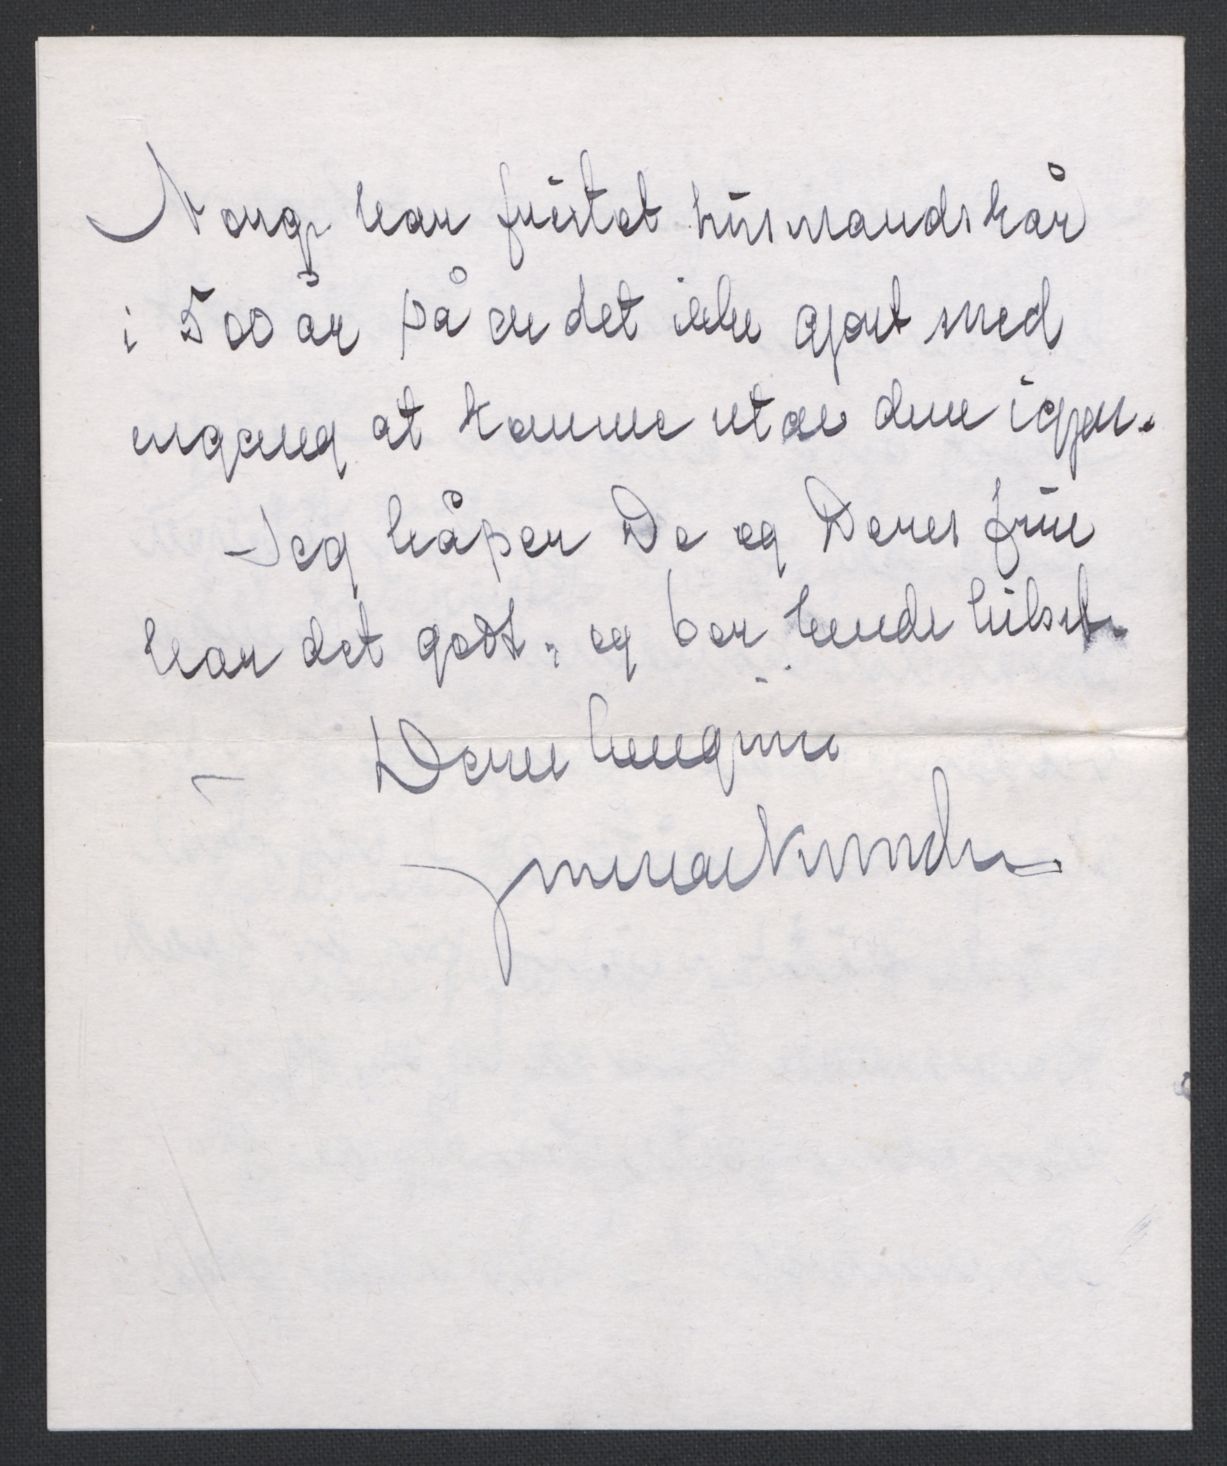 Norge har fristet husmandskår
i 500 år så er det ikke gjort med
engang at komme ut av dem igjen.
Jeg håper De og Deres frue
har det godt, og ber hende hilset.
Deres hengivne